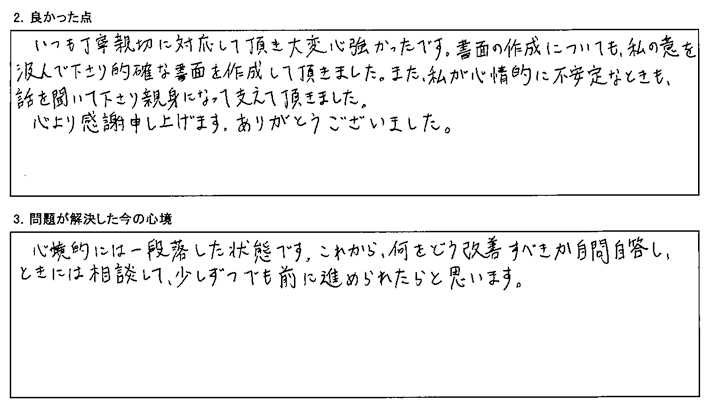 2. 良かった点
いつも丁寧親切に対応して頂き大変心強かったです。書面の作成についても、私の意を
汲んで下さり的確な書面を作成して頂きました。また、私が心情的に不安定なときも、
話を聞いて下さり親身になって支えて頂きました。
心より感謝申し上げます。ありがとうございました。
3. 問題が解決した今の心境
心境的には一段落した状態です。これから、何をどう改善すべきか自問自答し、
ときには相談して、少しずつでも前に進められたらと思います。